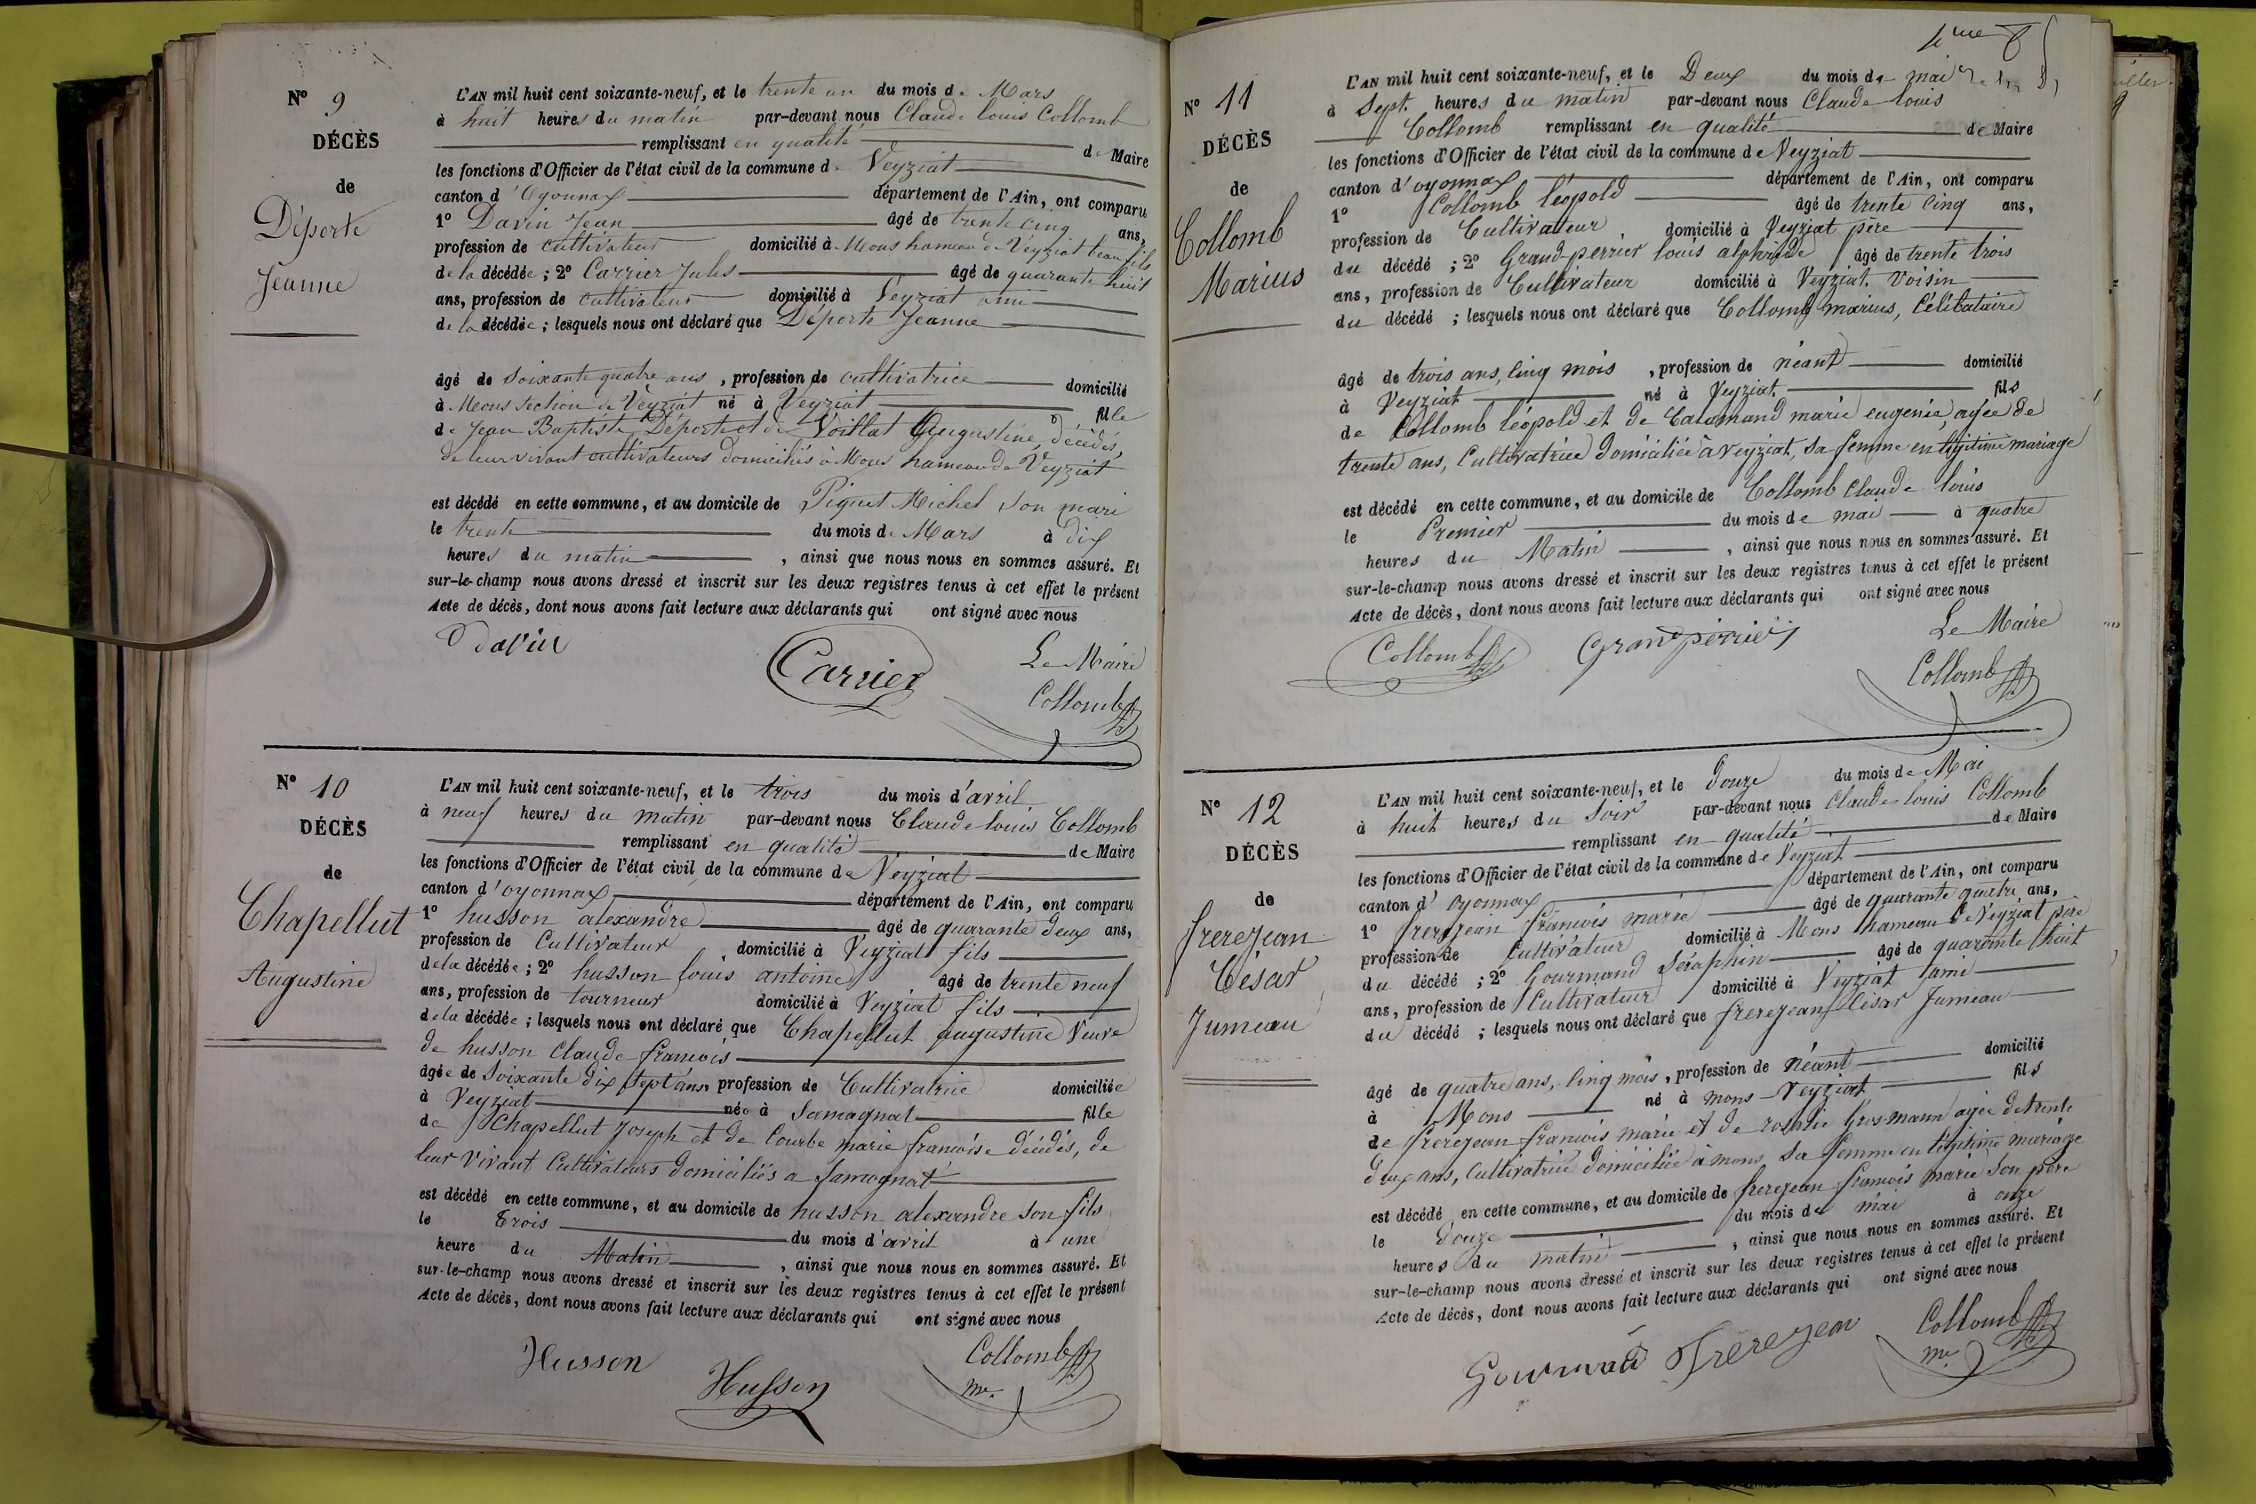 N° 9
DÉCÈS
de
Déporte
Jeanne
L'AN mil huit cent soixante-neuf, et le trente un du mois de Mars
à huit heures du matin par-devant nous Claude louis Collomb
remplissant en qualité de Maire
les fonctions d'Officier de l'état civil de la commune de Veyziat
canton d'Oyonnax département de l'Ain, ont comparu
1° Davin Jean âgé de trente cinq ans,
profession de cultivateur domicilié à Mons hameau de Veyziat beau fils
de la décédée ; 2° Carrier Jules âgé de quarante huit
ans, profession de cultivateur domicilié à Veyziat ami
de la décédée ; lesquels nous ont déclaré que Déporte Jeanne
âgé de soixante quatre ans , profession de cultivatrice domicilié
à Mons section de Veyziat né à Veyziat fille
de Jean Baptiste Déporte et de Voillat Augustine, décédés,
de leur vivant cultivateurs domiciliés à Mons hameau de Veyziat
est décédé en cette commune, et au domicile de Piquet Michel son mari
le trente du mois de Mars à dix
heures du matin , ainsi que nous nous en sommes assuré. Et
sur-le-champ nous avons dressé et inscrit sur les deux registres tenus à cet effet le présent
Acte de décès, dont nous avons fait lecture aux déclarants qui ont signé avec nous
Davin Carrier Le Maire
Collomb
N° 10
DÉCÈS
de
Chapellut
Augustine
L'AN mil huit cent soixante-neuf, et le trois du mois d'avril
à neuf heures du matin par-devant nous Claude louis Collomb
remplissant en qualité de Maire
les fonctions d'Officier de l'état civil de la commune de Veyziat
canton d'oyonnax département de l'Ain, ont comparu
1° husson alexandre âgé de quarante deux ans,
profession de Cultivateur domicilié à Veyziat fils
de la décédée ; 2° husson louis antoine âgé de trente neuf
ans, profession de tourneur domicilié à Veyziat fils
de la décédée ; lesquels nous ont déclaré que Chapellut augustine Veuve
de husson Claude francois
âgée de Soixante dix sept ans, profession de Cultivatrice domiciliée
à Veyziat née à Samognat fille
de Chapellut Joseph et de Courbe marie francoise décédés, de
leur vivant Cultivateurs domiciliés a Samognat
est décédé en cette commune, et au domicile de husson alexandre son fils
le Trois du mois d'avril à une
heure du Matin , ainsi que nous nous en sommes assuré. Et
sur-le-champ nous avons dressé et inscrit sur les deux registres tenus à cet effet le présent
Acte de décès, dont nous avons fait lecture aux déclarants qui ont signé avec nous
Husson Husson Collomb
me.
N° 11
DÉCÈS
de
Collomb
Marius
L'AN mil huit cent soixante-neuf, et le Deux du mois de mai
à Sept heures du matin par-devant nous Claude louis
Collomb remplissant en qualité de Maire
les fonctions d'Officier de l'état civil de la commune de Veyziat
canton d'oyonnax département de l'Ain, ont comparu
1° Collomb léopold âgé de trente cinq ans,
profession de Cultivateur domicilié à Veyziat père
du décédé ; 2° Grand-perrier louis âgé de trente trois
ans, profession de Cultivateur domicilié à Veyziat Voisin
du décédé ; lesquels nous ont déclaré que Collomb marius, Célibataire
âgé de trois ans, cinq mois , profession de néant domicilié
à Veyziat né à Veyziat fils
de Collomb léopold et de marie eugenie, agée de
trente ans, Cultivatrice domiciliée à Veyziat, sa femme en légitime mariage
est décédé en cette commune, et au domicile de Collomb Claude louis
le Premier du mois de mai à quatre
heures du Matin , ainsi que nous nous en sommes assuré. Et
sur-le-champ nous avons dressé et inscrit sur les deux registres tenus à cet effet le présent
Acte de décès, dont nous avons fait lecture aux déclarants qui ont signé avec nous
Collomb Grandperrier Le Maire
Collomb
N° 12
DÉCÈS
de
frereJean
César
Jumeau
L'AN mil huit cent soixante-neuf, et le douze du mois de Mai
à huit heures du Soir par-devant nous Claude louis Collomb
remplissant en qualité de Maire
les fonctions d'Officier de l'état civil de la commune de Veyziat
canton d'oyonnax département de l'Ain, ont comparu
1° frerejean francois marie âgé de quarante quatre ans,
profession de Cultivateur domicilié à Mons hameau de Veyziat père
du décédé ; 2° Gourmand Séraphin âgé de quarante huit
ans, profession de Cultivateur domicilié à Veyziat ami
du décédé ; lesquels nous ont déclaré que frerejean César Jumeau
âgé de quatre ans, cinq mois , profession de néant domicilié
à Mons né à mons Veyziat fils
de frerejean francois marie et de rosalie Grosmann agée de trente
deux ans, Cultivatrice domiciliée à mons sa femme en légitime mariage
est décédé en cette commune, et au domicile de frerejean francois marie son père
le douze du mois de mai à onze
heures du matin , ainsi que nous nous en sommes assuré. Et
sur-le-champ nous avons dressé et inscrit sur les deux registres tenus à cet effet le présent
Acte de décès, dont nous avons fait lecture aux déclarants qui ont signé avec nous
Gourmand Frerejean Collomb
me